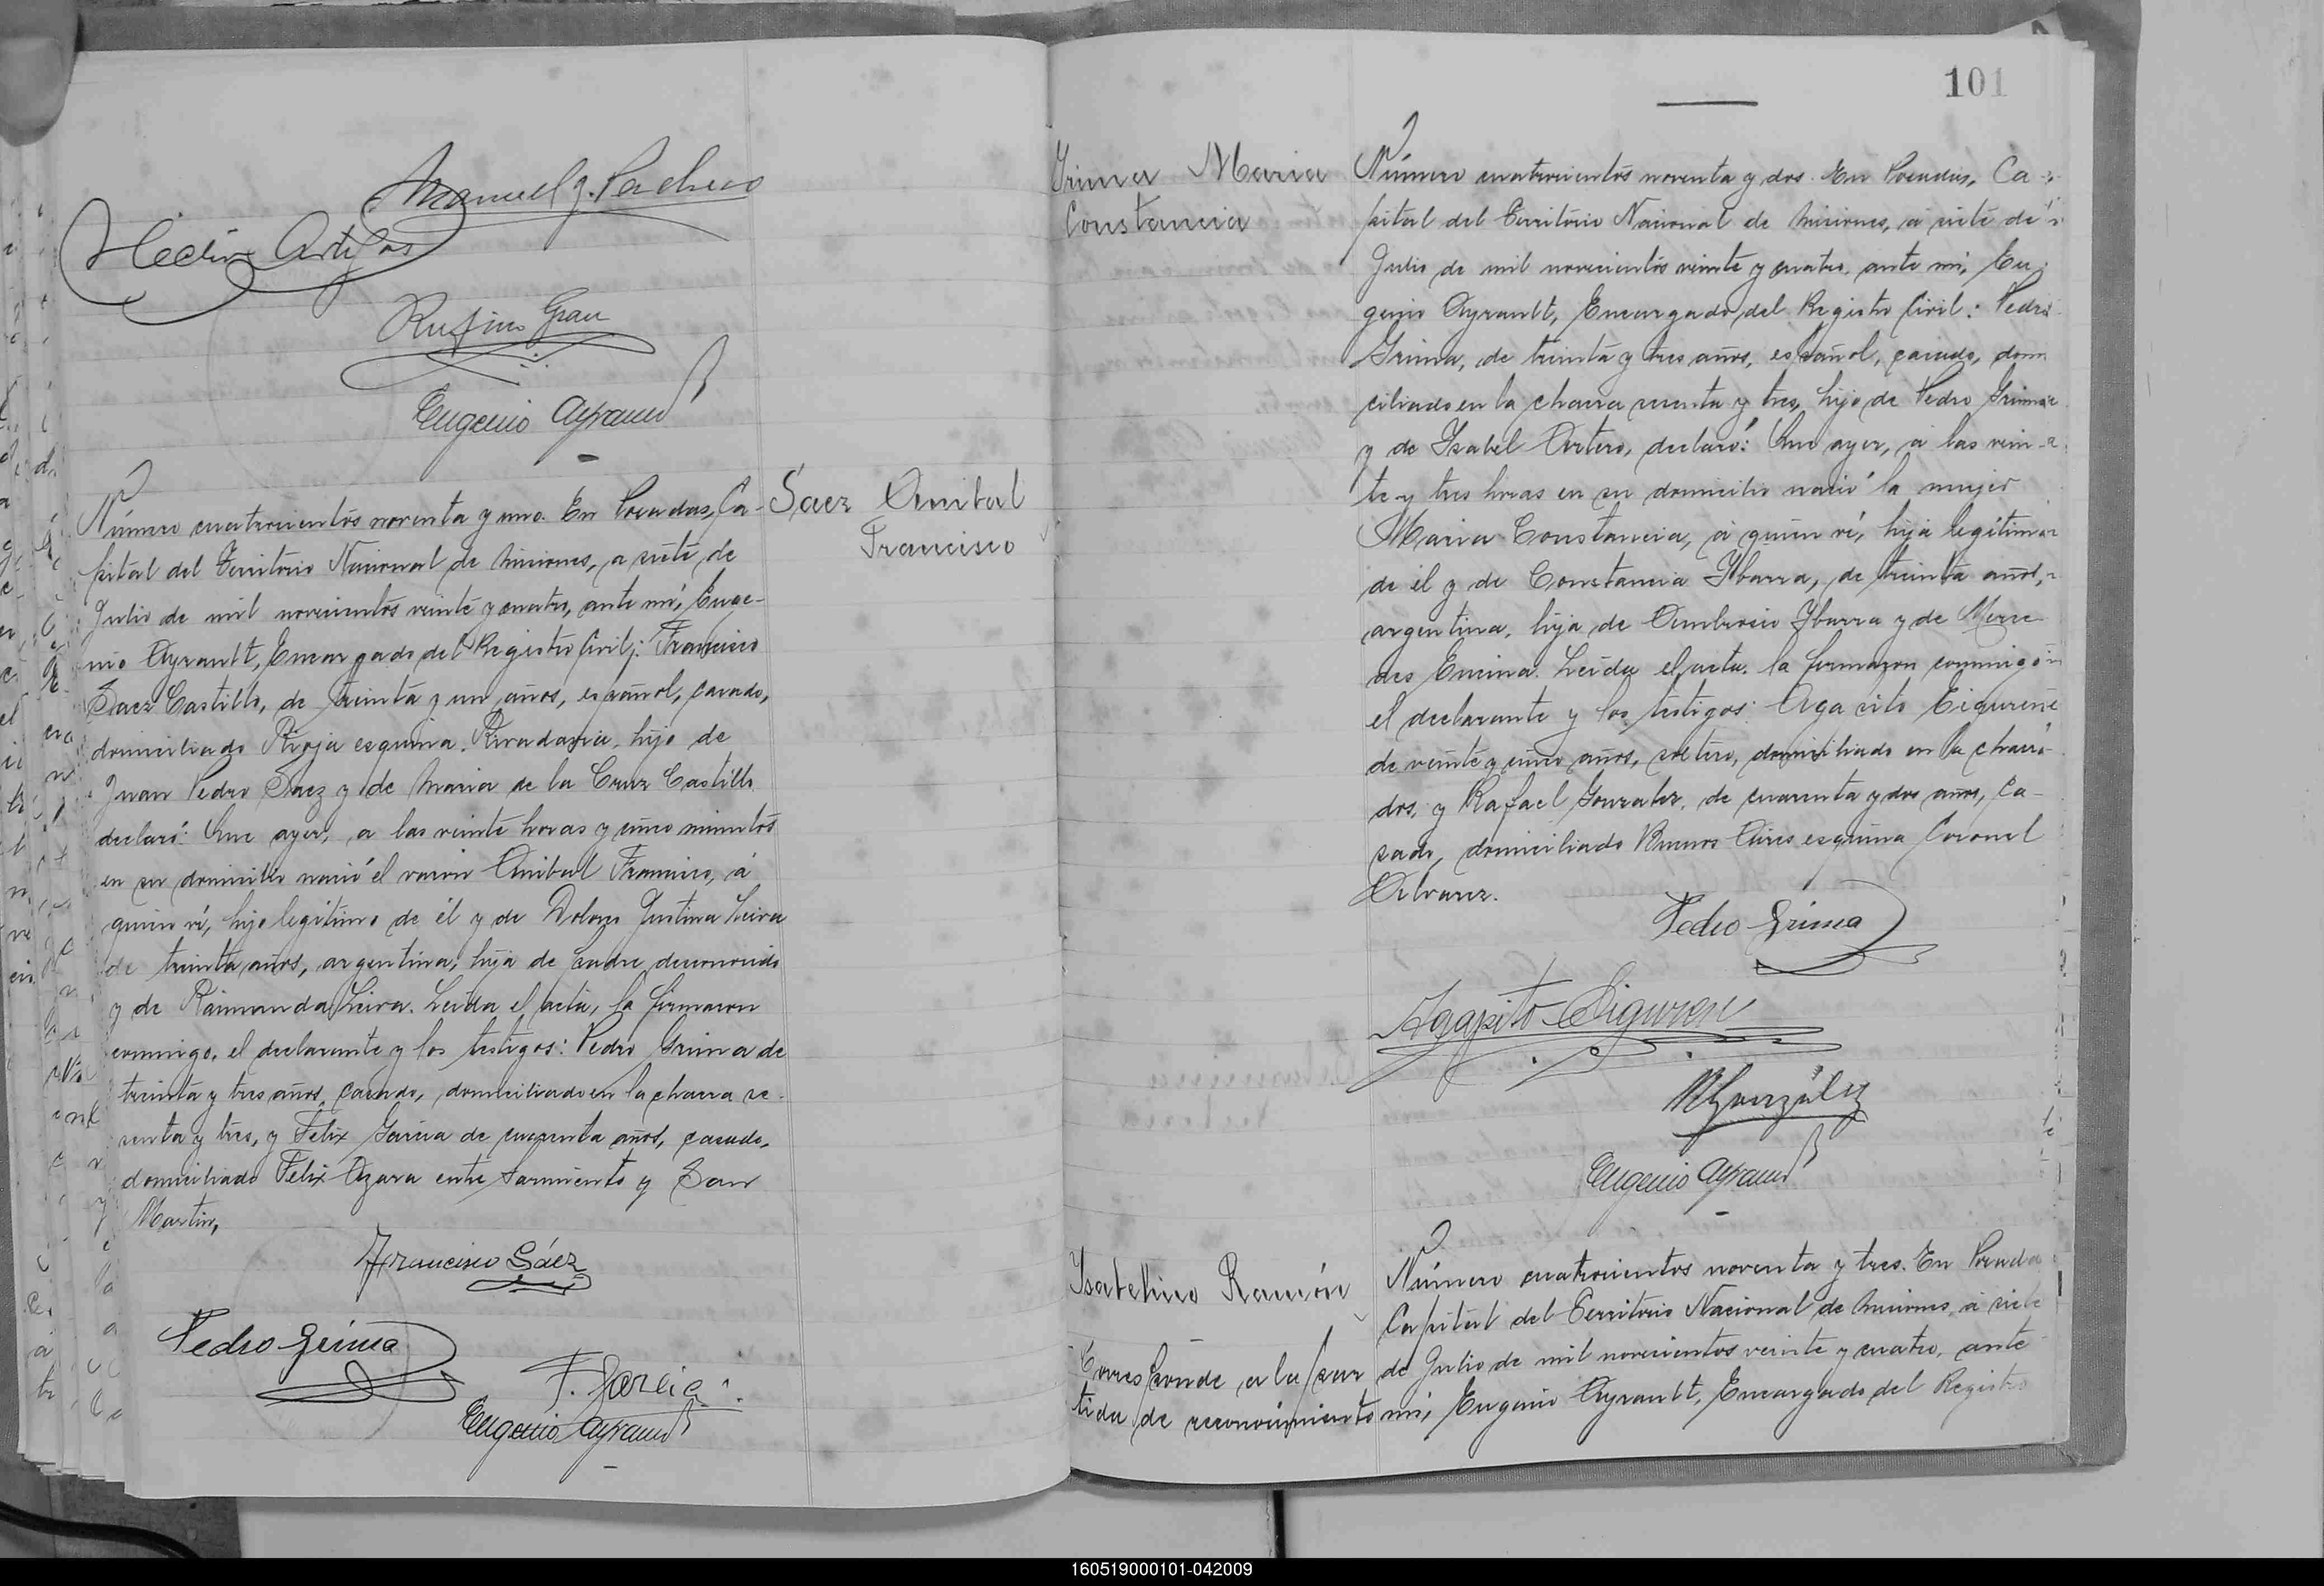 Manuel J. Pacheco
Hector Artigas
Rufino Grau
Eugenio Ayrault
Número cuatrocientos noventa y uno. En Posadas, Ca-
pital del Territorio Nacional de Misiones, a siete de
Julio de mil novecientos veinte y cuatro, ante mí, Euge-
nio Ayrault, Encargado del Registro Civil: Francisco
Saez Castillo, de treinta y un años, español, casado,
domiciliado Rioja esquina Rivadavia, hijo de
Juan Pedro Saez y de Maria de la Cruz Castillo
declaró: Que ayer, a las veinte horas y cinco minutos
en su domicilio nació el varón Anibal Francisco, á
quien ví, hijo legítimo de él y de Dolores Justina Leiva
de treinta años, argentina, hija de padre desconocido
y de Raimunda Leiva. Leida el acta, la firmaron
conmigo, el declarante y los testigos: Pedro Grima de
treinta y tres años, casado, domiciliado en la chacra se-
senta y tres, y Felix Garcia de cuarenta años, casado,
domiciliado Felix Azara entre Sarmiento y San
Martin,
Francisco Sáez
Pedro Grima
F. Garcia
Eugenio Ayrault
Saez Anibal
Francisco
101
Grima Maria
Constancia
Número cuatrocientos noventa y dos. En Posadas, Ca-
pital del Territorio Nacional de Misiones, á siete de
Julio de mil novecientos veinte y cuatro, ante mí, Eu-
genio Ayrault, Encargado del Registro Civil: Pedro
Grima, de treinta y tres años, español, casado, domi
ciliado en la chacra sesenta y tres, hijo de Pedro Grima
y de Isabel Artero, declaró: Que ayer, á las vein-
te y tres horas en su domicilio nació la mujer
Maria Constancia, á quien ví, hija legítima
de él y de Constancia Ybarra, de treinta años,
argentina, hija de Ambrosio Ybarra y de Merce
des Encina. Leida el acta, la firmaron conmigo
el declarante y los testigos: Agapito Eiguren
de veinte y cinco años, soltero, domiciliado en la chacra
dos, y Rafael Gonzalez, de cuarenta y dos años, ca-
sado, domiciliado Buenos Aires esquina Coronel
Alvarez.
Pedro Grima
Agapito Eiguren
R González
Eugenio Ayrault
Ysabelino Ramón
Corresponde a la par
tida de reconocimiento
Número cuatrocientos noventa y tres. En Posadas
Capital del Territorio Nacional de Misiones, á siete
de Julio de mil novecientos veinte y cuatro, ante
mí, Eugenio Ayrault, Encargado del Registro
160519000101-042009